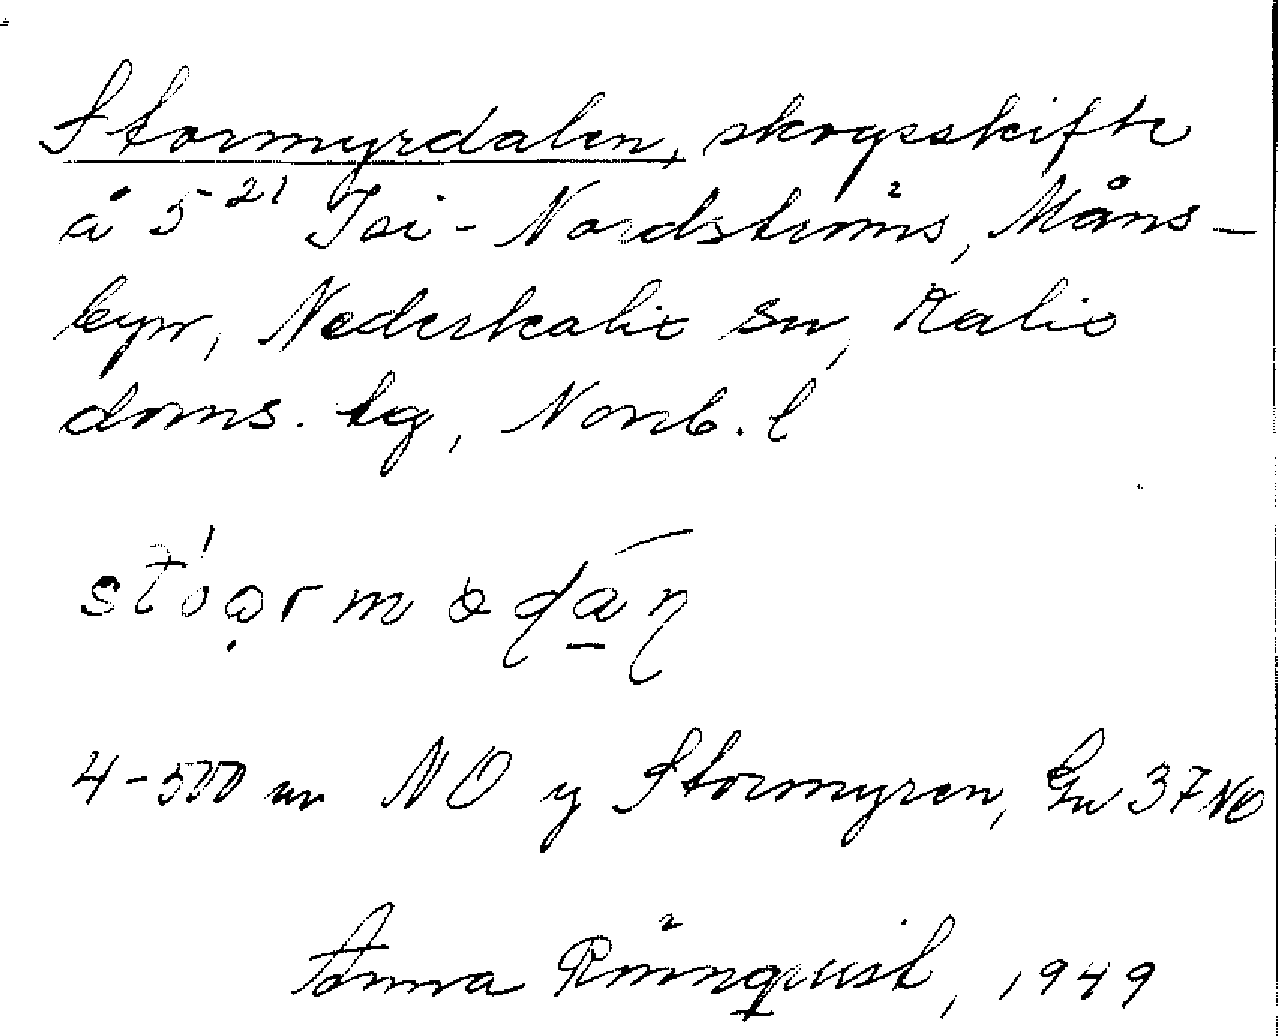 Stormyrdalen, skogsskifte
å 5²¹ Isi-Nordströms, Måns-
byn, Nederkalix sn, Kalix
doms. lag, Norrb. l
4-500 m NO Stormyren, 37 NO
Anna Rönnqvist, 1949